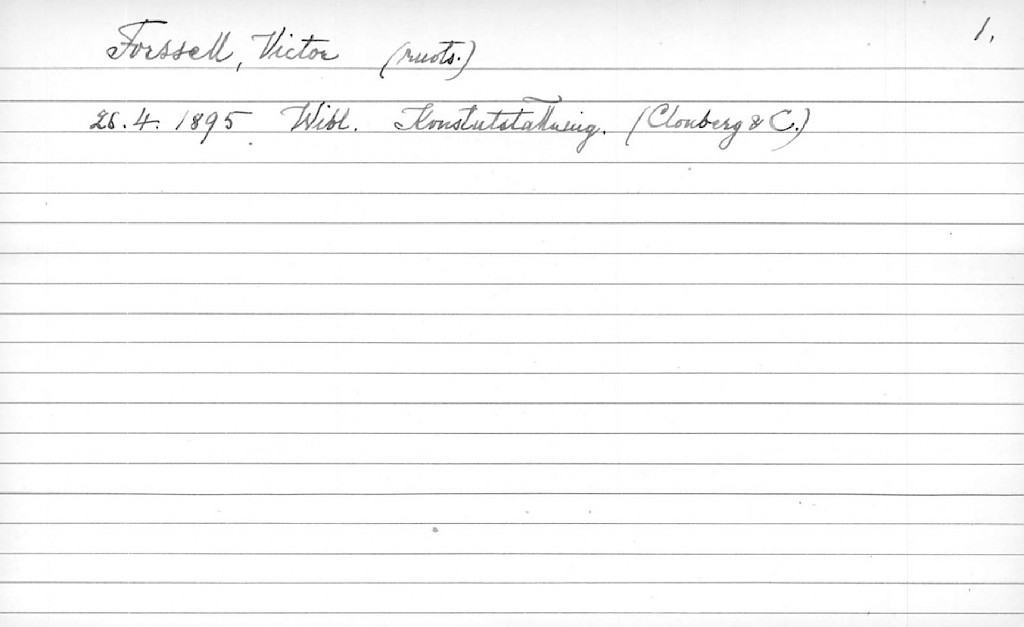 Forssell, Victor (ruots.) 1.
26.4. 1895 Wibl. Konstutställning. (Clouberg & C.)